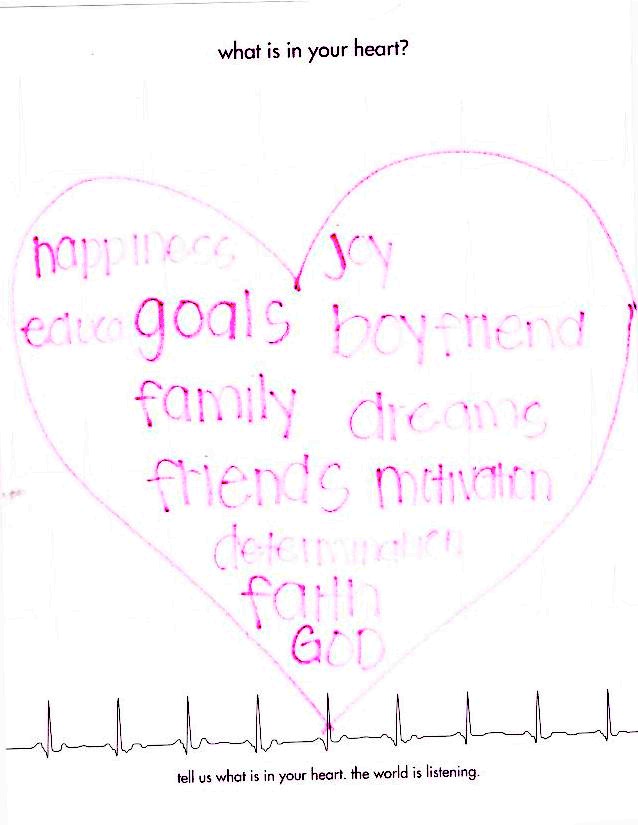 what is in your heart?
happiness joy
educa goals boyfriend
family dreams
friends motivation
determination
faith
GOD
tell us what is in your heart. the world is listening.